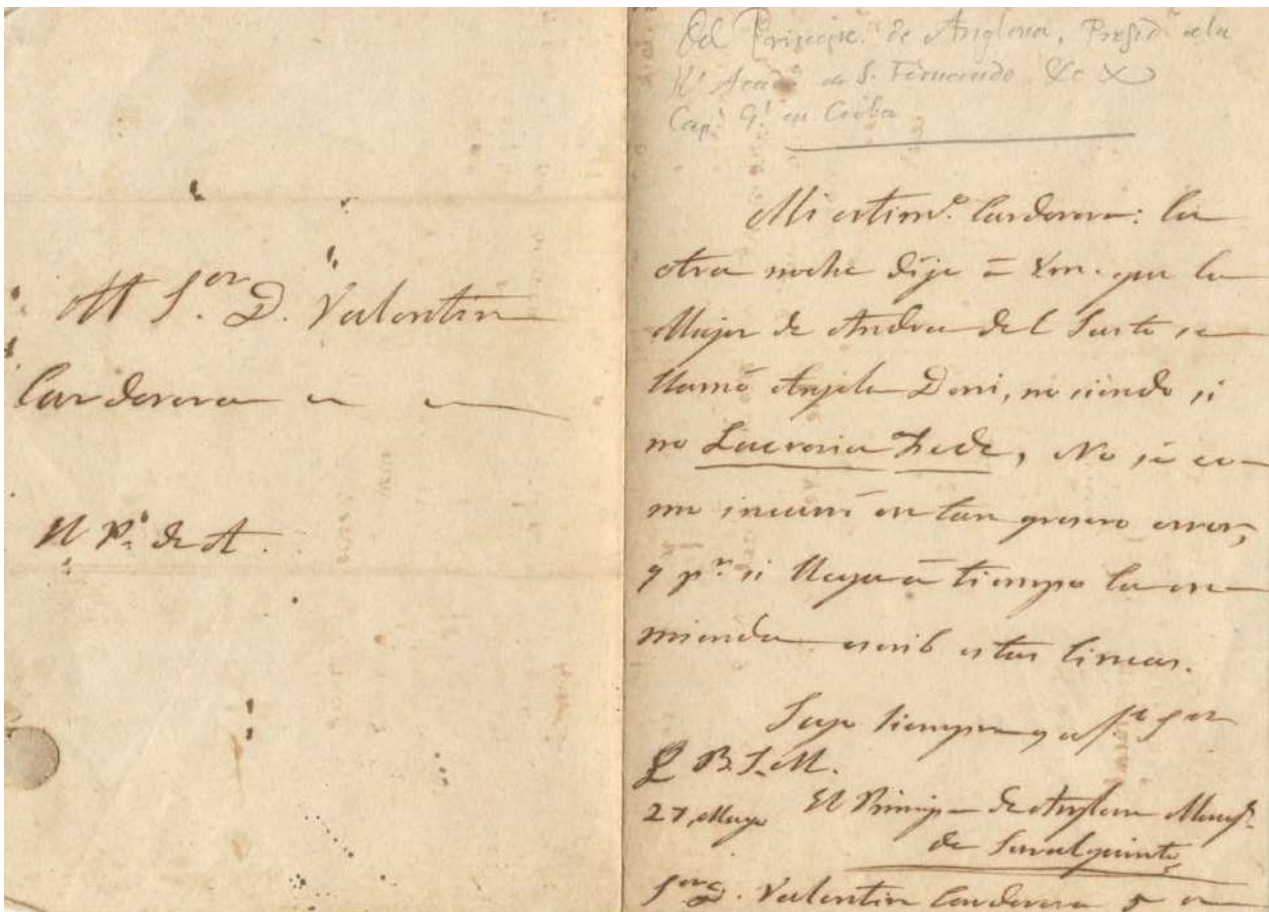 Al S.or D. Valentin
Carderera
El P.e de A.
Del Principe de Anglona, Presid.te de la
R.l Acad.a de S. Fernando &c &c
Cap.n G.l en Cuba
Mi estim.o Carderera: la
otra noche dije á Vm. que la
Mujer de Andrea del Sarto se
llamó Angela Doni, no siendo si
no Lucrecia Fede, No sé co-
mo incurrí en tan grosero error,
y p.r si llega á tiempo la en-
mienda escribo estas lineas.
Suyo siempre y af.
Q B.S.M.
27, Mayo El Principe de Anglona Marq.s
de Javalquinto
S.or D. Valentin Carderera